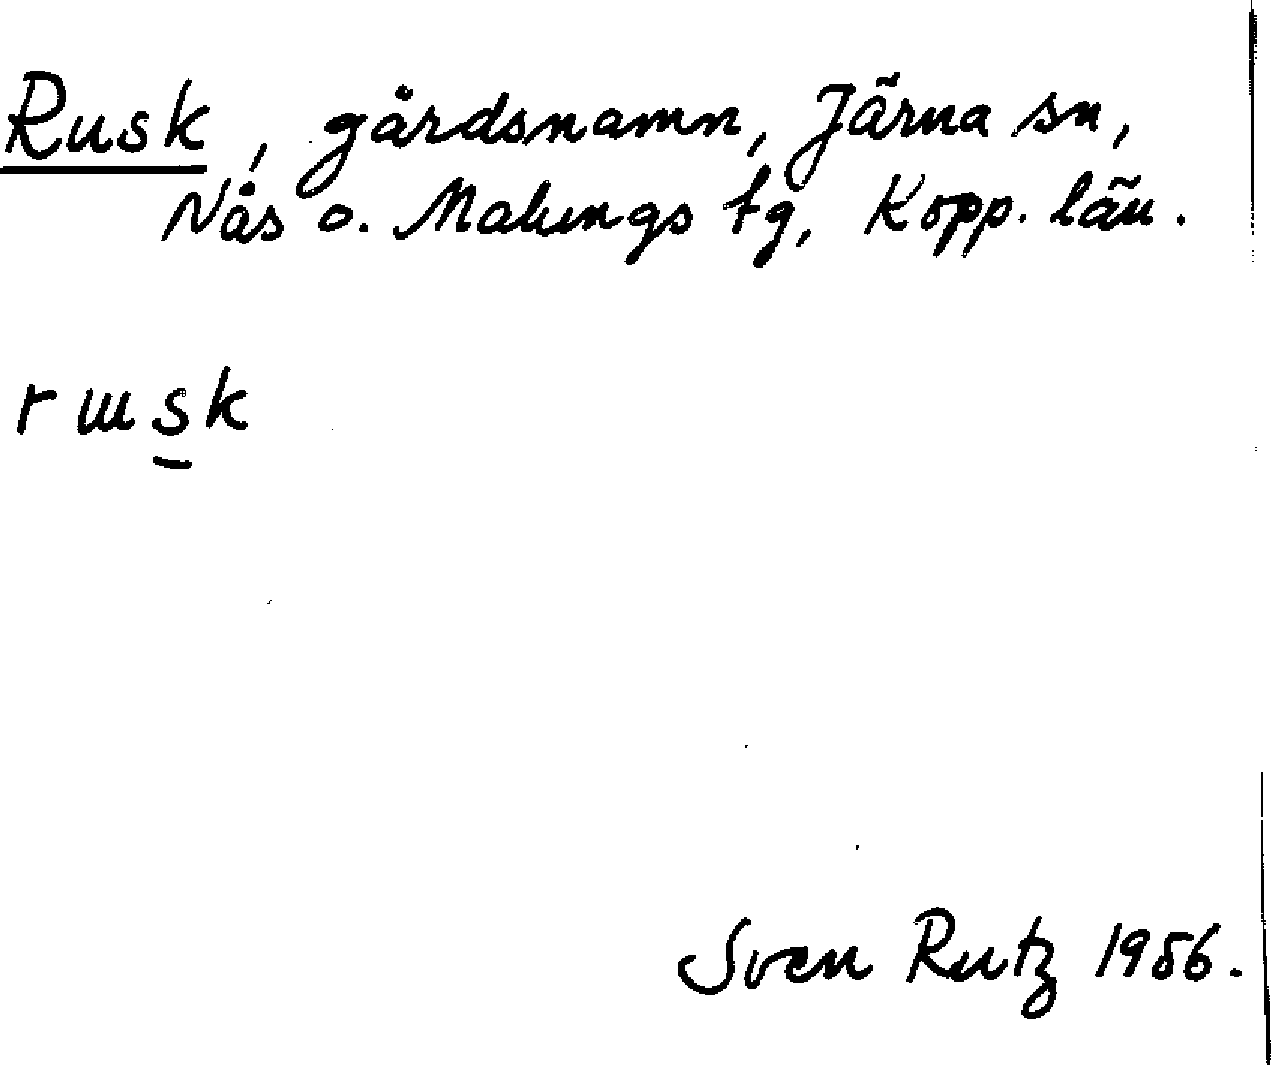 Rusk, gårdsnamn, Järna sn,
Nås o. Malungs tg, Kopp. län.
rɯsk
Sven Rutz 1956.